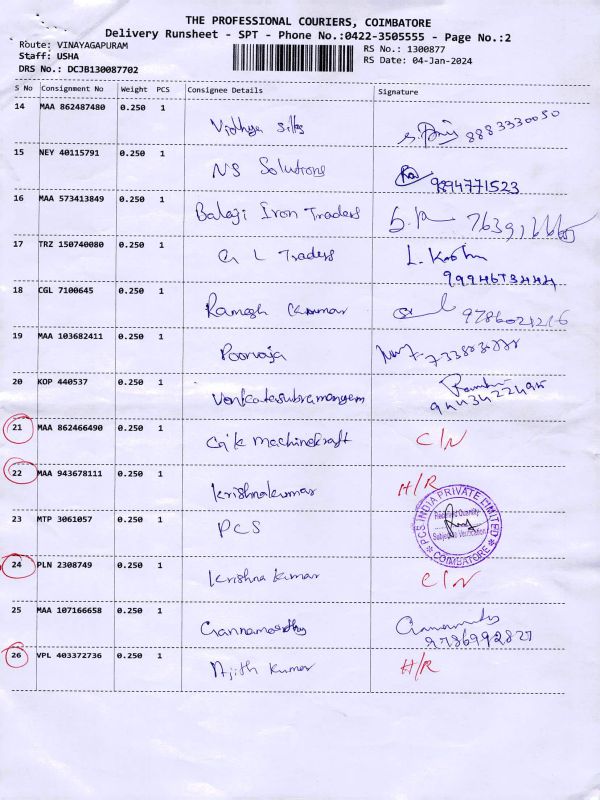 THE PROFESSIONAL COURIERS, COIMBATORE
Delivery Runsheet - SPT - Phone No.:0422-3505555 - Page No.:2
Route: VINAYAGAPURAM
RS No.: 1300877
Staff: USHA
RS Date: 04-Jan-2024
DRS No.: DCJB130087702
S No Consignment No Weight PCS Consignee Details Signature
14 MAA 862487480 0.250 1
Vidhya Silks 8883330050
15 NEY 40115791 0.250 1
NS Solutions 9894771523
16 MAA 573413849 0.250 1
Balagi Iron Traders
17 TRZ 150740080 0.250 1
G L Traders L.
18 CGL 7100645 0.250 1
Ramesh Kumar
19 MAA 103682411 0.250 1
Poorvaja
20 KOP 440537 0.250 1
Venkatesubramanyam
21 MAA 862466490 0.250 1
machinekraft C/N
22 MAA 943678111 0.250 1
Krishnakumar H/R
23 MTP 3061057 0.250 1
PCS
PCS INDIA PRIVATE LIMITED
Received Quantity
Subject to Verification
COIMBATORE
24 PLN 2308749 0.250 1
Krishna Kumar C/N
25 MAA 107166658 0.250 1
Gannamoorthy
9786992827
26 VPL 403372736 0.250 1
Ajith Kumar H/R